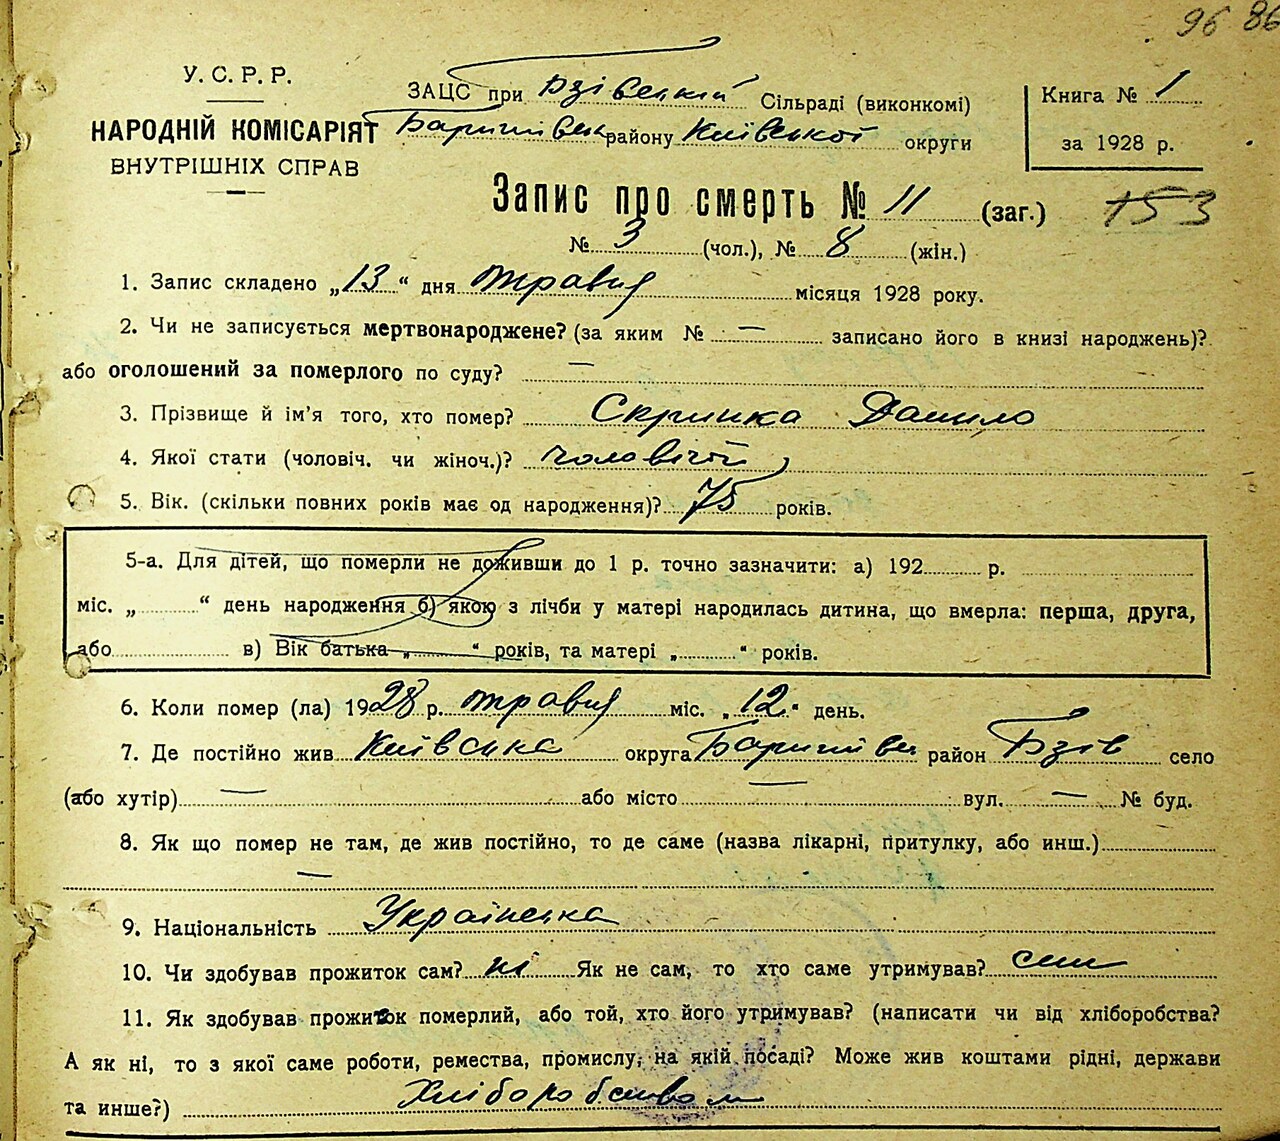 96 86
У. С. Р. Р.
НАРОДНІЙ КОМІСАРІЯТ
ВНУТРІШНІХ СПРАВ
ЗАЦС при Бзівській Сільраді (виконкомі)
Баришівськ району Київської округи
Книга № 1
за 1928 р.
Запис про смерть № 11 (заг.) 153
№ 3 (чол.), № 8 (жін.)
1. Запис складено „13“ дня травня місяця 1928 року.
2. Чи не записується мертвонароджене? (за яким № — записано його в книзі народжень)?
або оголошений за померлого по суду? —
3. Прізвище й ім'я того, хто помер? Скрипка Данило
4. Якої стати (чоловіч. чи жіноч.)? чоловічої
5. Вік. (скільки повних років має од народження)? 75 років.
5-а. Для дітей, що померли не доживши до 1 р. точно зазначити: а) 192 р.
міс. „ “ день народження б) якою з лічби у матері народилась дитина, що вмерла: перша, друга,
або в) Вік батька „ “ років, та матері „ “ років.
6. Коли помер (ла) 1928 р. травня міс. „12“ день.
7. Де постійно жив Київська округа Баришівськ район Бзів село
(або хутір) — або місто — вул. — № буд.
8. Як що помер не там, де жив постійно, то де саме (назва лікарні, притулку, або инш.)
—
9. Національність Українська
10. Чи здобував прожиток сам? ні Як не сам, то хто саме утримував? син
11. Як здобував прожиток померлий, або той, хто його утримував? (написати чи від хліборобства?
А як ні, то з якої саме роботи, ремества, промислу, на якій посаді? Може жив коштами рідні, держави
та инше?) Хліборобством